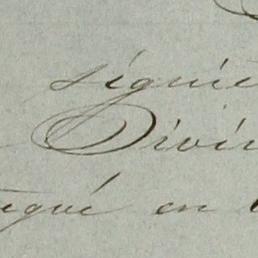 siguie
Divin
egué en